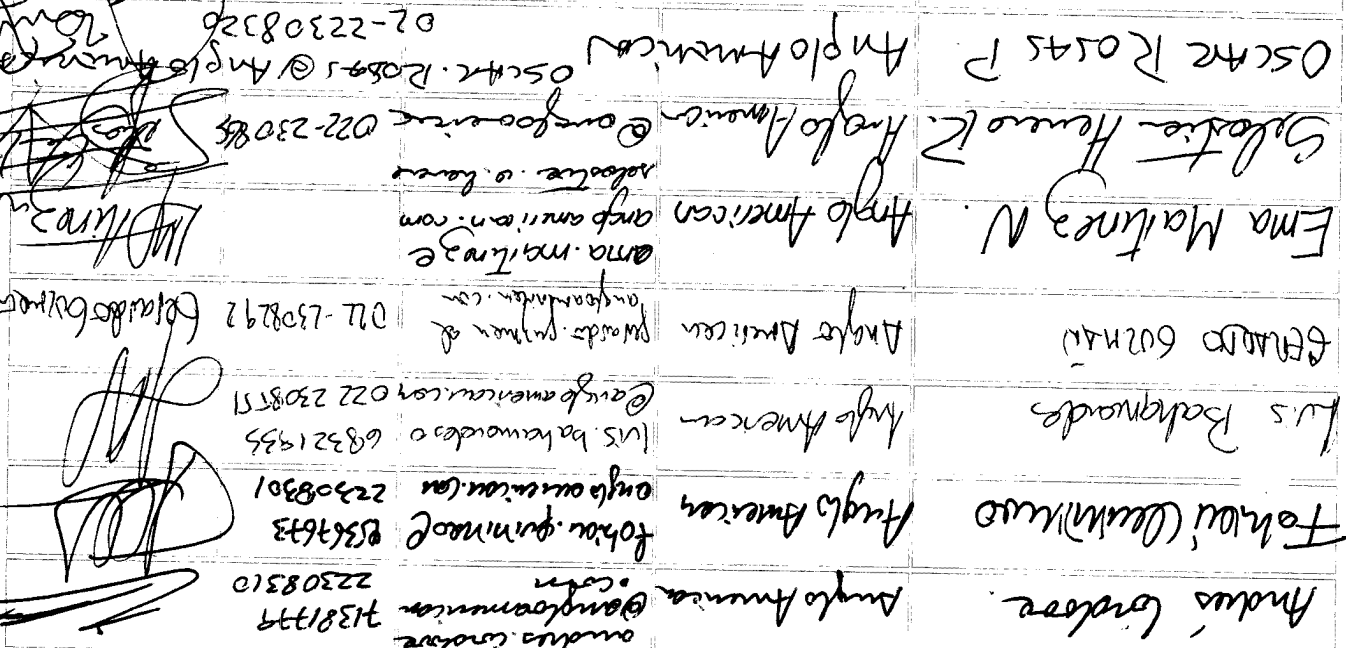 Andrés Cordova.
Anglo America
andres.cordova
@angloamerican
.com
71381779
22308310
Fabián
Anglo American
angloamerican.com
22308301
Luis Bahamondes
Anglo American
luis.bahamondes@
@angloamerican.com
68321935
022 2308551
GERARDO GUZMÁN
Anglo American
gerardo.guzman@
angloamerican.com
022-2308292
Gerardo Guzmán
Ema Martinez N.
Anglo American
ema.martinez@
angloamerican.com
Sebastian Herrera R.
Anglo American
@angloamerica
OSCAR ROSAS P.
Anglo American
OSCAR.ROSAS@Angloamerican
02-22308320